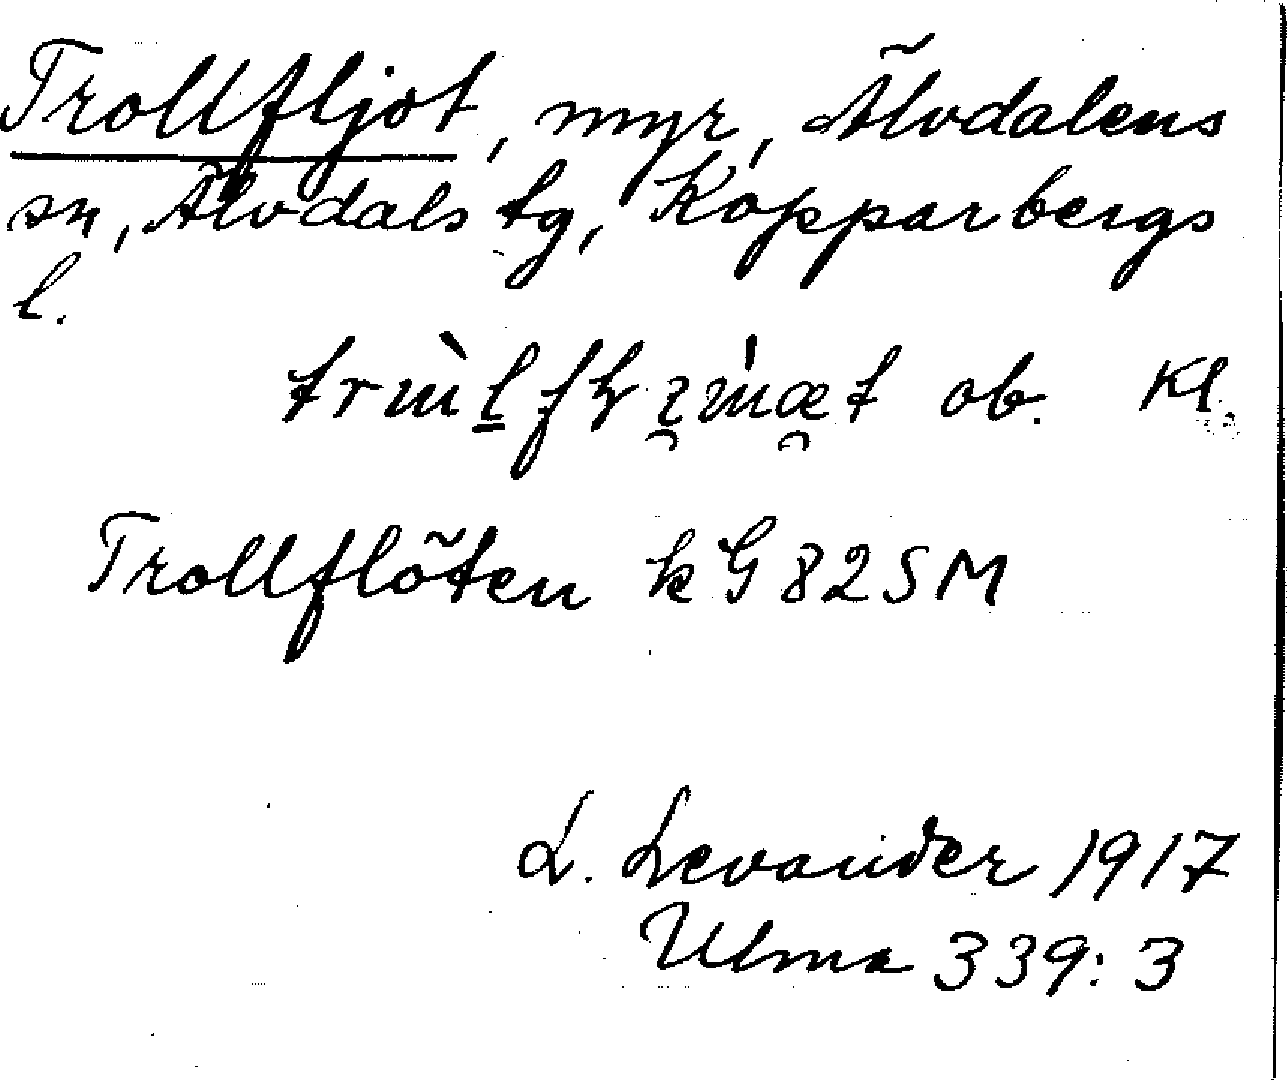 Trollfljot, myr, Älvdalens
sn, Älvdals tg, Kopparbergs
l.
ob. Kl.
Trollflöten kG 82 SM
L. Levander 1917
Ulma 339:3